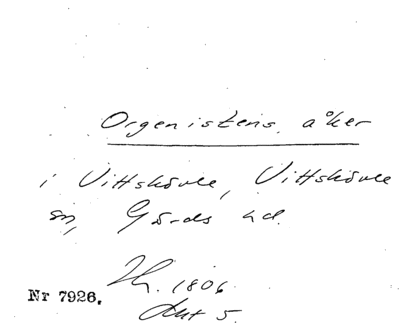 Organistens åker
i Vittskövle, Vittskövle
sn, Gärds hd.
1806
Nr 7926.
Akt 5.